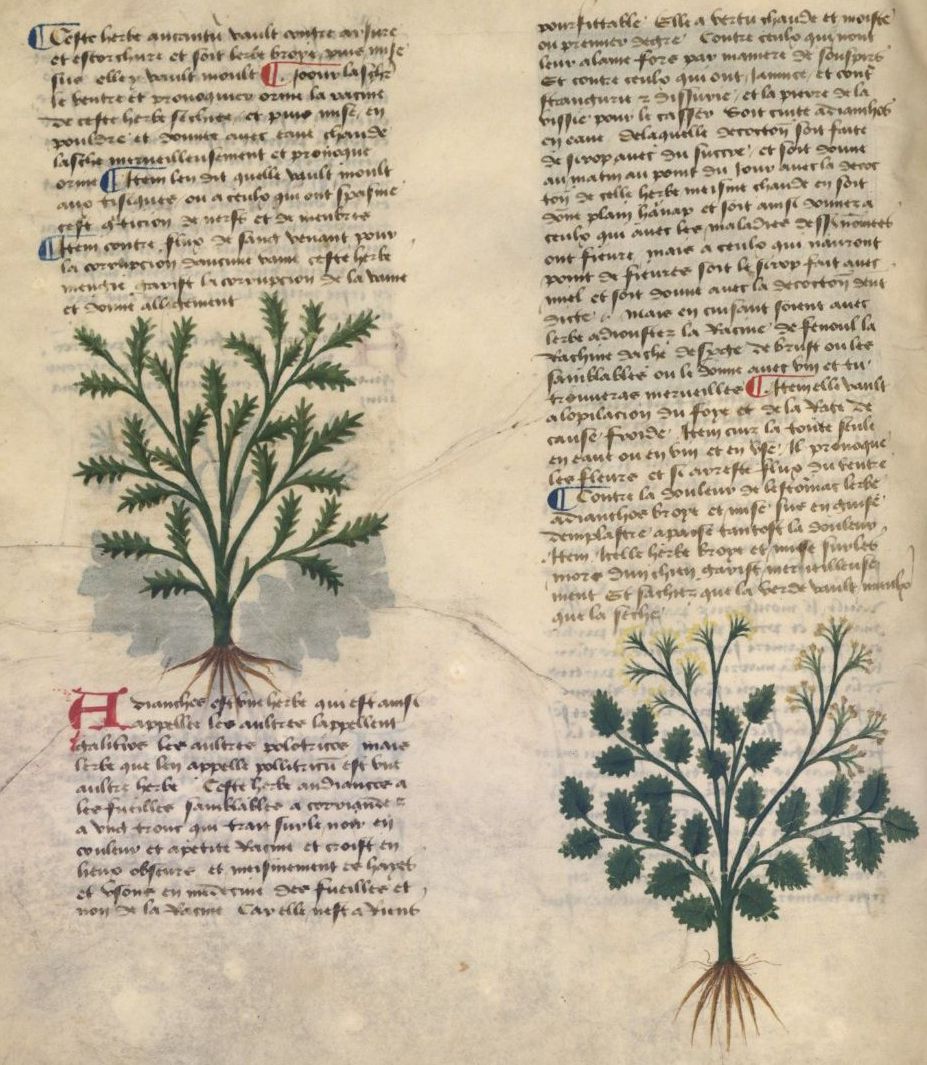 Ceste herbe aucuntu vault contre arsure
et escorchure et soit lerbe broye puis mise
sus elle y vault moult Pour laschr
le ventre et prouoquier orine la racine
de ceste herbe sechiee et puis mise en
pouldre et donnee auec eaue chaude
lasche merueilleusement et prouoque
orine Item len dit quelle vault moult
aux tisiques ou a ceulx qui ont spasme
cest de nerfs et de menbres
Item contre flux de sang venant pour
la corrupcion daucune vaine ceste herbe
mengie garist la corrupcion de la vaine
et donne allegement
Adianthos est vne herbe qui est ainsi
appellee les aultres lappellent
galitios les aultres polotricos mais
lerbe que len appelle pollitricu est vne
aultre herbe Ceste herbe a
les fueilles samblables a coriandre
a vng tronc qui trait sur le noir en
couleur et a petite racine et croist en
lieux obscurs et meismement es hayes
et vsons en medecine des fueilles et
non de la racine Car elle nest a rient
pourfittable Elle a vertu chaude et moiste
ou premier degre Contre ceulx qui ont
leur alaine fors par maniere de souspirs
Et contre ceulx qui ont jaunice et cont
strangurie et dissurie et la pierre de la
vissie pour la casser Soit cuite adianthos
en eaue De laquelle decoction soit faite
de sirop auec du succre et soit donne
au matin au point du Jour auec la decoc
ton de celle herbe meisme chaude en soit
done plain hanap et soit ainsi donner a
ceulx qui auec les maladies dessusnomees
ont fieure mais a ceulx qui nauront
point de fieures soit le sirop fait auec
miel et soit donne auec la decoction deut
dicte mais en cuisant soient auec
lerbe adioustez la racine de fenoul la
rachine dache de brust ou les
samblables ou le donne auec vin et tu
trouueras merueilles Item elle vault
a lopilacion du foye et de la rate de
cause froide Item cuir la toute seule
en eaue ou en vin et en vse Il prouoque
les fleurs et si arreste flux du ventre
Contre la douleur de lestomac lerbe
adianthos broye et mise sus en guise
demplastre apaise tantost la douleur
Item Icelle herbe broye et mise sur les
mors dun chien garist merueilleuse
ment Et sachiez que la verde vault mieulx
que la seche